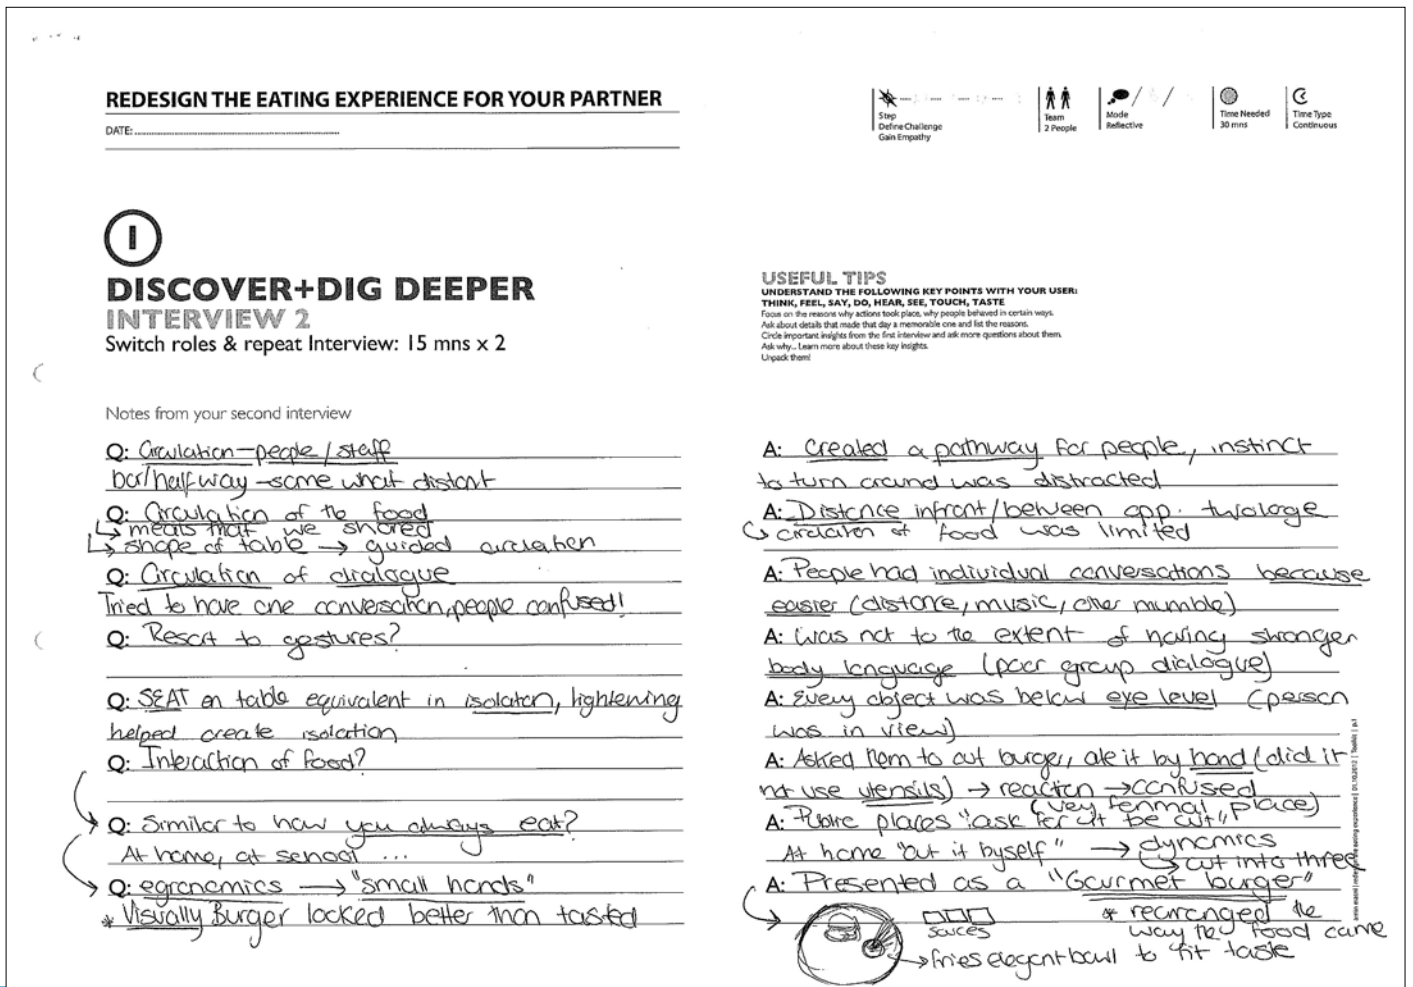 REDESIGN THE EATING EXPERIENCE FOR YOUR PARTNER
DATE:
Step
Define Challenge
Gain Empathy
Team
2 People
Mode
Reflective
Time Needed
30 mns
Time Type
Continuous
1
DISCOVER+DIG DEEPER
INTERVIEW 2
Switch roles & repeat Interview: 15 mns x 2
USEFUL TIPS
UNDERSTAND THE FOLLOWING KEY POINTS WITH YOUR USER:
THINK, FEEL, SAY, DO, HEAR, SEE, TOUCH, TASTE
Focus on the reasons why actions took place, why people behaved in certain ways.
Ask about details that made that day a memorable one and list the reasons.
Circle important insights from the first interview and ask more questions about them.
Ask why... Learn more about these key insights.
Unpack them!
Notes from your second interview
Q: Circulation-people/staff
bar/halfway - some what distant
Q: Circulation of the food
↳ meals that we shared
↳ shape of table → guided circulation
Q: Circulation of dialogue
Tried to have one conversation, people confused!
Q: Resort to gestures?
Q: SEAT on table equivalent in isolation, lightening
helped create isolation
Q: Interaction of food?
Q: Similar to how you always eat?
At home, at school ...
Q: egronomics → "small hands"
* Visually Burger looked better than tasted
A: Created a pathway for people, instinct
to turn around was distracted
A: Distance infront/between opp. was large
↳ circulation of food was limited
A: People had individual conversations because
easier (distance, music, other mumble)
A: Was not to the extent of having stronger
body language (poor group dialogue)
A: Every object was below eye level (person
was in view)
A: Asked them to cut burger, ate it by hand (did it
not use utensils) → reaction → confused
(very formal place)
A: Public places "ask for it be cut"
At home "cut it byself" → dynamics
↳ cut into three
A: Presented as a "Gourmet burger"
sauces
* rearranged the
way the food came
to fit taste
→ fries elegant bowl
amin masni | redesign the eating experience | 01.10.2012 | Toolkit | p.1